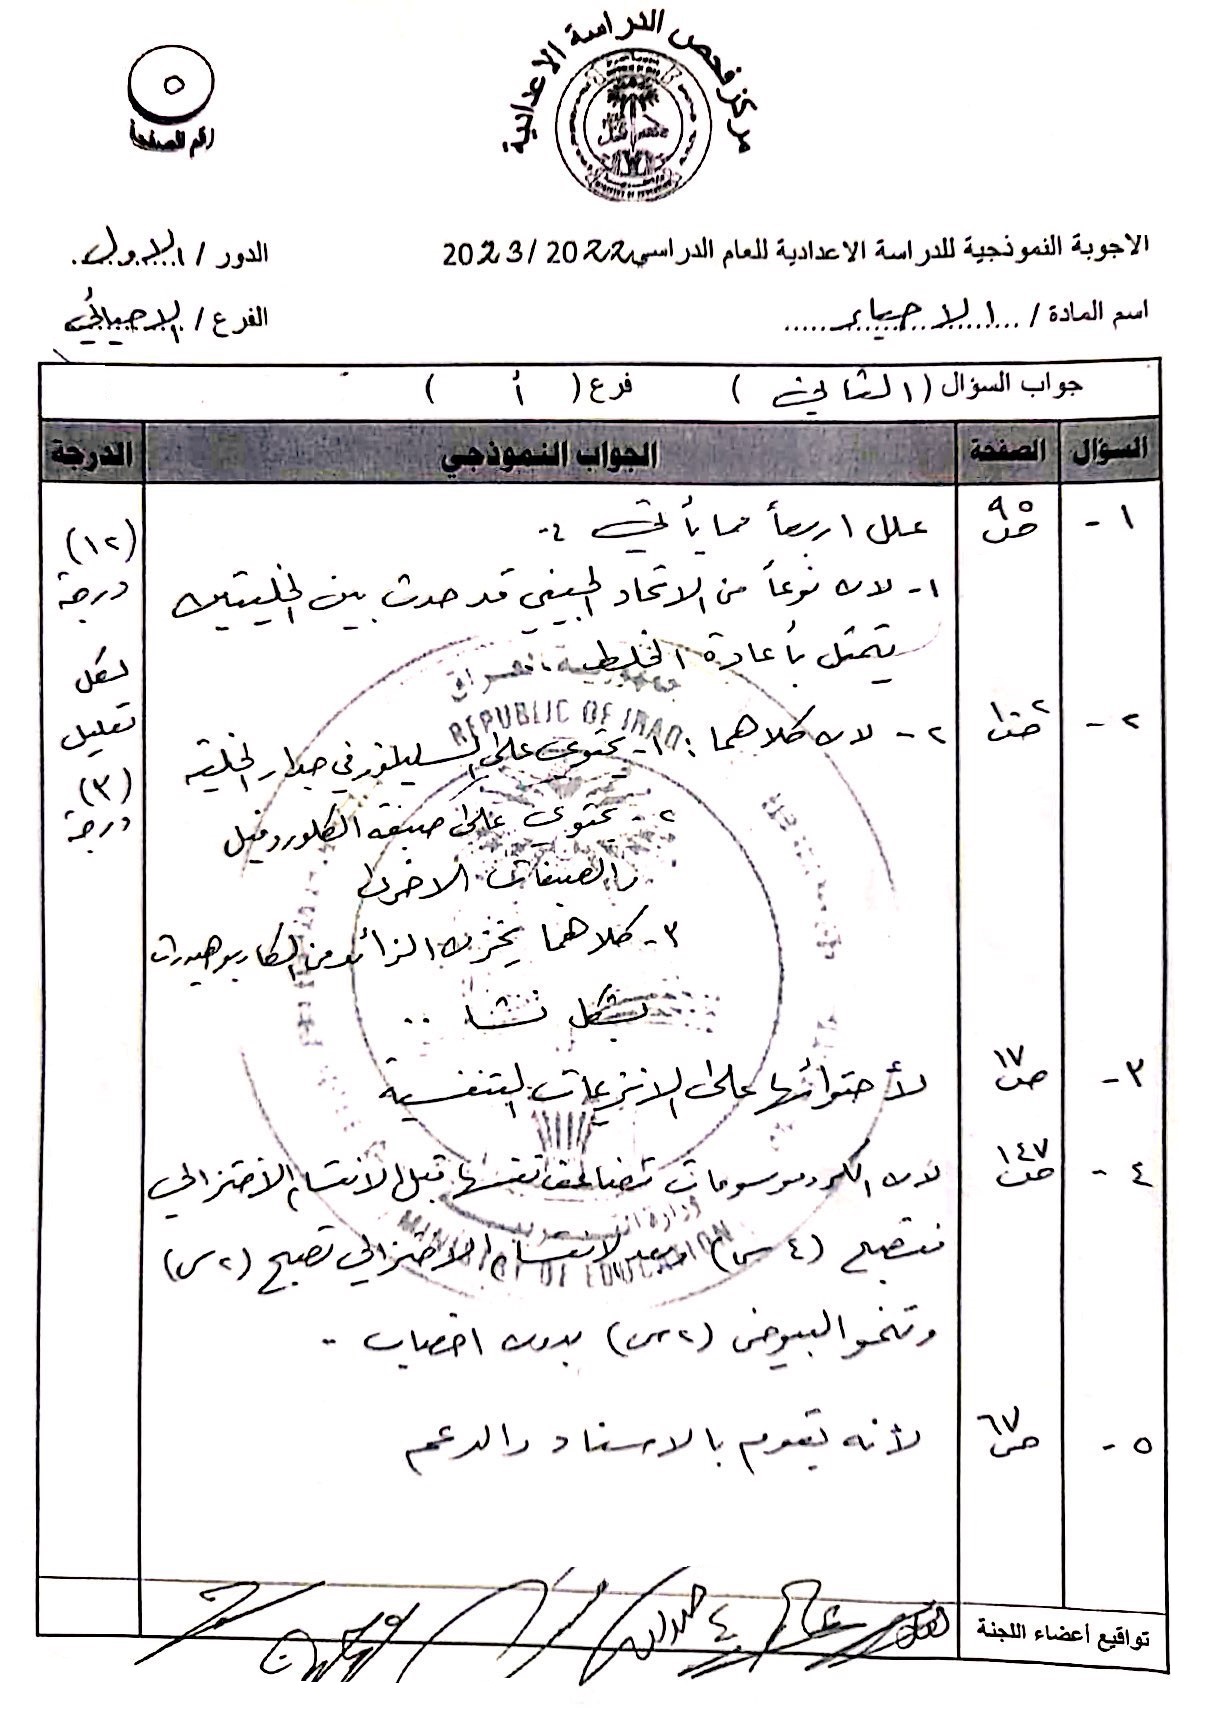 مركز فحص الدراسة الاعدادية
رقم الصفحة
الاجوبة النموذجية للدراسة الاعدادية للعام الدراسي 2022/2023
الدور / الاول
اسم المادة / الاحياء
الفرع / الاحيائي
جواب السؤال ( الثاني ) فرع ( أ )
السؤال الصفحة الجواب النموذجي الدرجة
١- ص٩٥ علل اربعاً مما يأتي :- (١٢) درجة
١- لان نوعاً من الاتحاد الجنسي قد حدث بين الخليتين
يتمثل بأعادة الخلط
لكل تعليل (٣) درجة
٢- ص١٠٢ ٢- لان كلاهما : ١- يحتوي على السليلوز في جدار الخلية
٢- يحتوي على صبغة الكلوروفيل
والصبغات الاخرى
٣- كلاهما يخزن الزائد من الكاربوهيدرات
بشكل نشا ..
٣- ص١٧ لأحتوائها على الانزيمات التنفسية
٤- ص١٤٧ لان الكروموسومات تضاعف نفسها قبل الانقسام الاختزالي
فتصبح (٤س) وبعد الانقسام الاختزالي تصبح (٢س)
وتنمو البيوض (٢س) بدون اخصاب ..
٥- ص٦٧ لأنه يقوم بالاسناد والدعم
تواقيع أعضاء اللجنة
جمهورية العراق
REPUBLIC OF IRAQ
وزارة التربية
MINISTRY OF EDUCATION